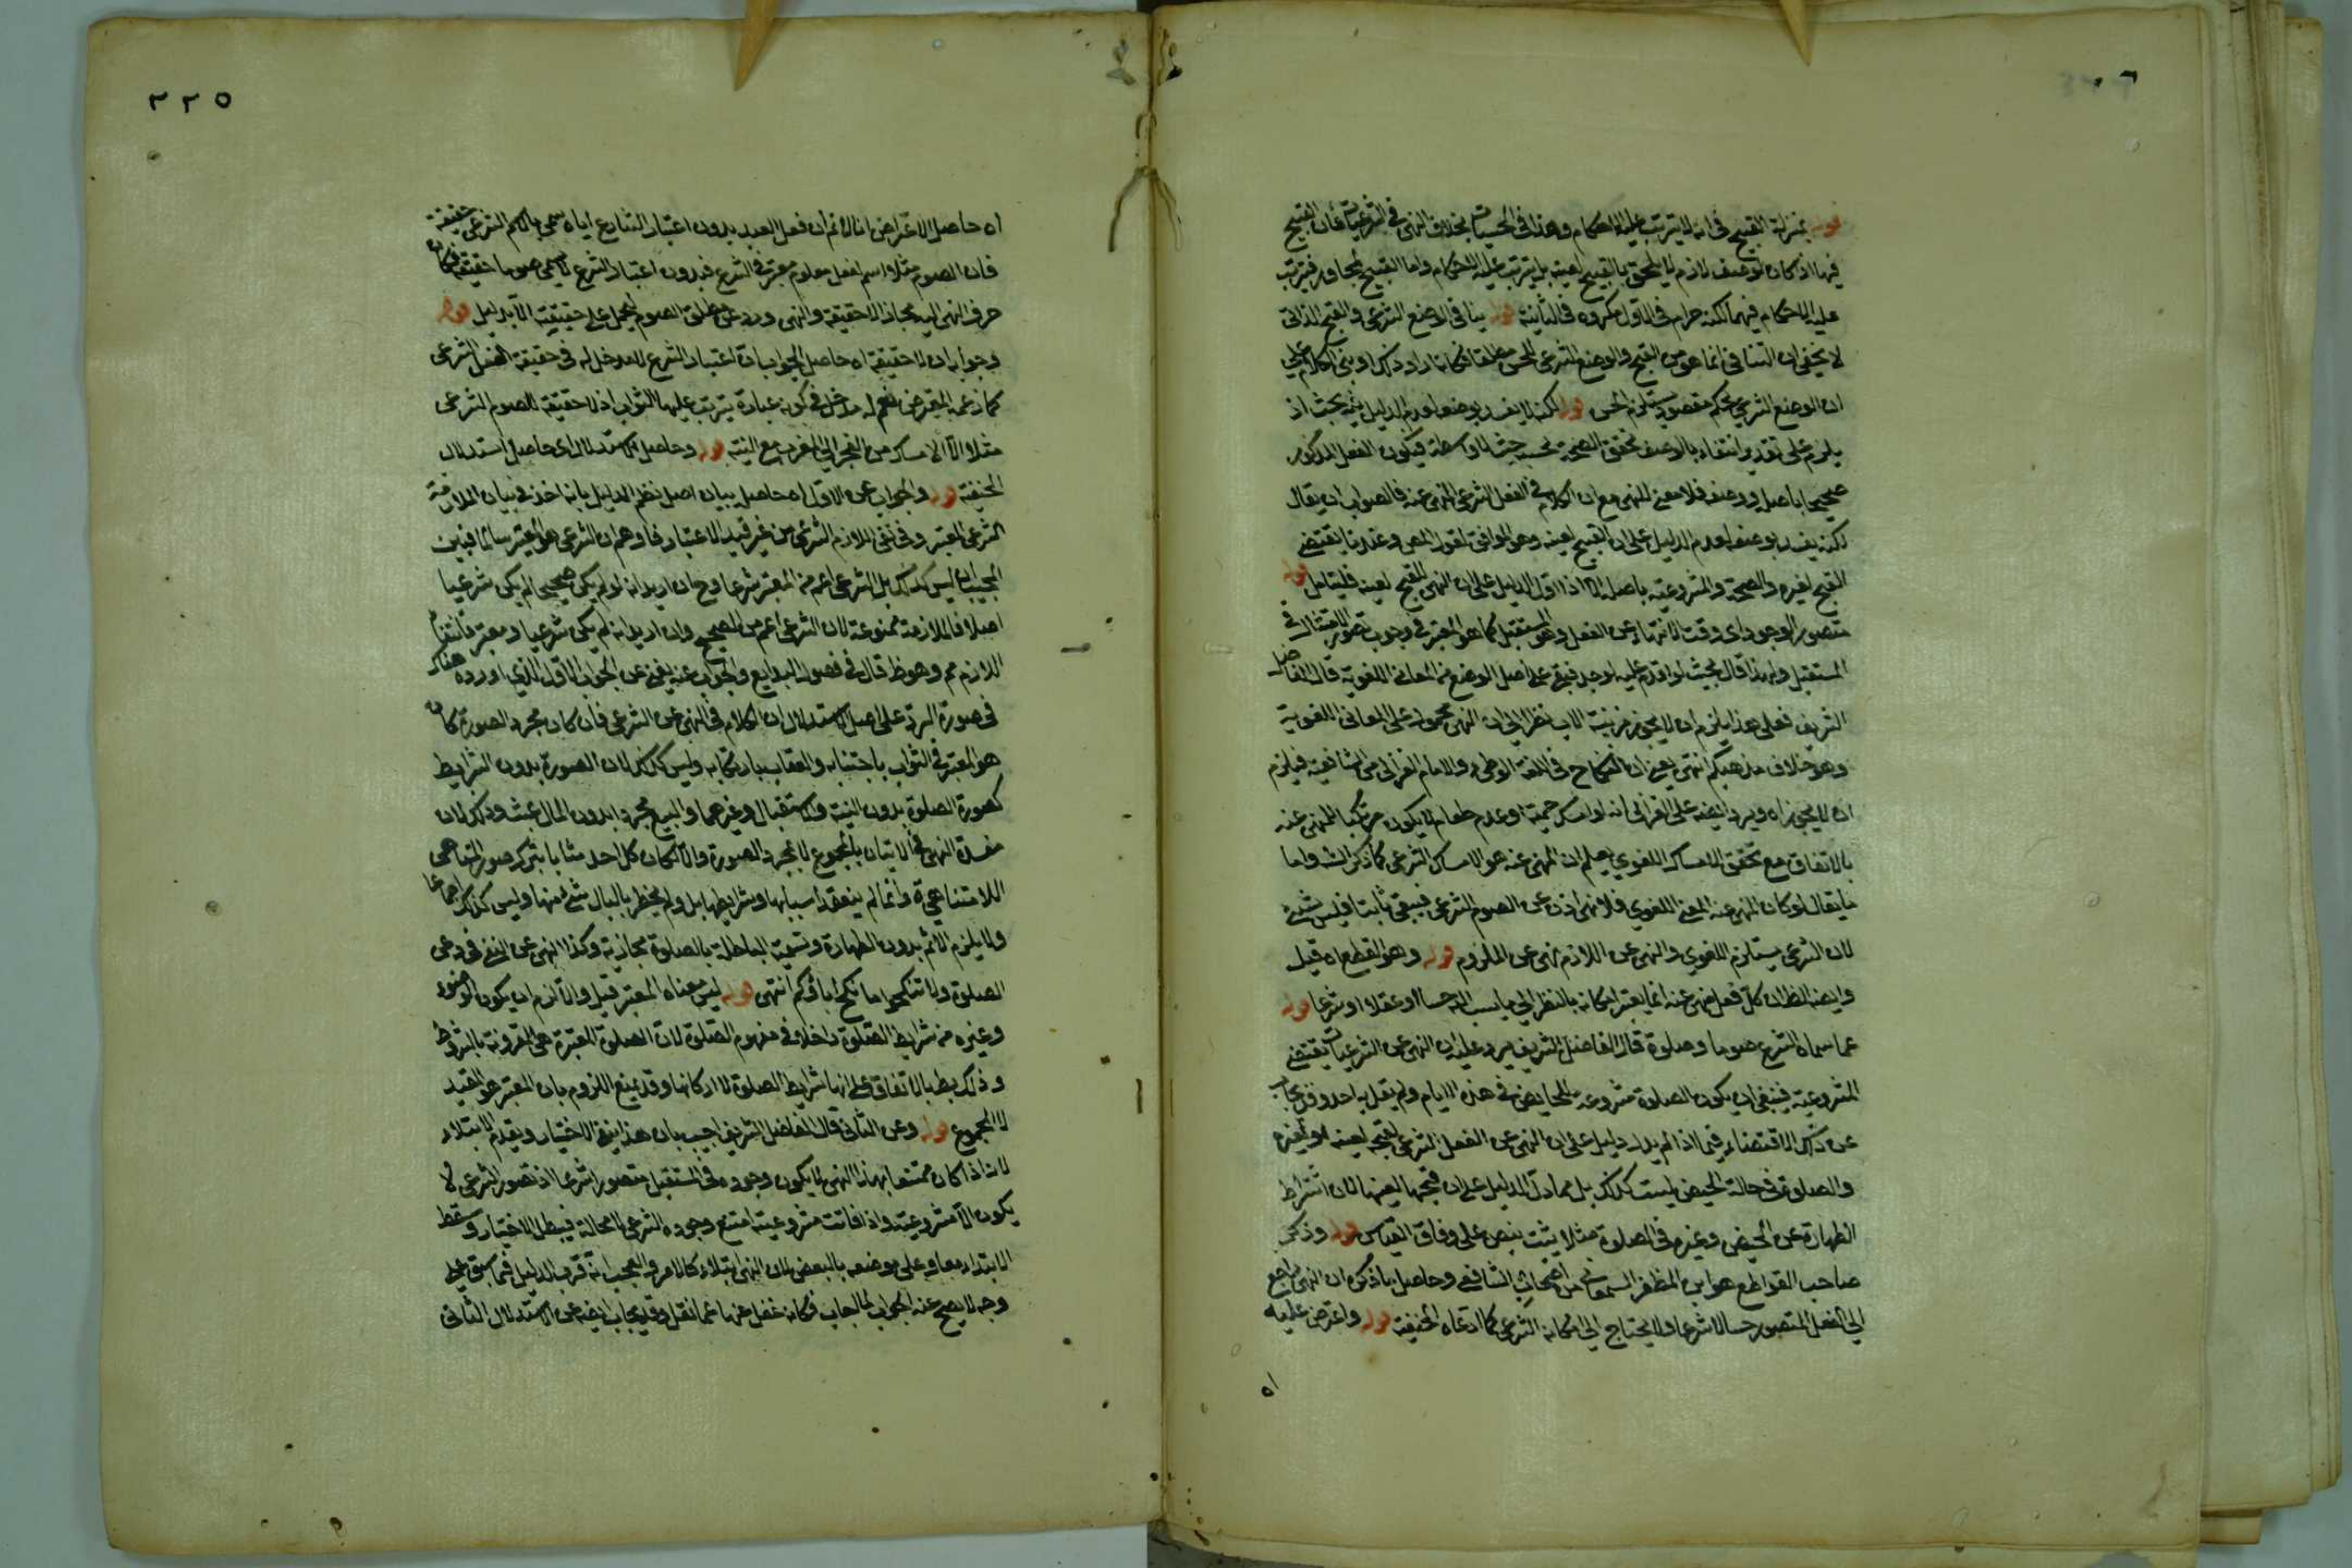 قوله بمنزلة القبيح في انه لا يترتب عليه الاحكام وهذا في الحسيات بخلاف النهي في الشرعيات فان القبيح
فيها اذا كان لوصف لازم لا يلحق بالقبيح لعينه بل يترتب عليه الاحكام واما القبيح لمجاور فيترتب
عليه الاحكام فيهما لكنه حرام في الاول مكروه في الثانية قوله ينافي الوضع الشرعي والقبح الذاتي
لا يخفى ان التنافي انما هو بين القبح والوضع الشرعي للحسن مطلقا فكانه اراد ذلك او بنى الكلام على
ان الوضع الشرعي بحكم مقصود يستلزم الحسن قوله لكنه لا يفسد بوصفه لعدم الدليل فيه بحث اذ
يلزم على تقدير انتفاء بالوصف تحقق الصحة بحسبه حيث لا واسطة فيكون الفعل المذكور
صحيحا باصله ووصفه فلا معنى للنهي مع ان الكلام في الفعل الشرعي المنهي عنه فالصواب ان يقال
لكنه يفسد بوصفه لعدم الدليل على ان القبح لعينه وهو الموافق لقول المص وعندنا يقتضي
القبح لغيره والصحة والمشروعية باصله الا اذا دل الدليل على ان النهي للقبح لعينه فليتامل قوله
متصور الوجود اى وقت الانتهاء عن الفعل وهو المستقبل كما هو المعتبر في وجوب تصور الامتثال في
المستقبل ولهذا قال بحيث لو اقدم عليه لوجد فيبقى على اصل الوضع من المعاني اللغوية قال الفاضل
الشريف فعلى هذا يلزم ان لا يجوز مزنية الاب نظرا الى ان النهي محمول على المعاني اللغوية
وهو خلاف مذهبكم انتهى يعني ان النكاح في اللغة الوطئ والامام الغزالي من الشافعية فيلزم
ان لا يجوزاه ويرد ايضه على الغزالي انه لو امسك حمية او عدم طعام لا يكون مرتكبا للمنهي عنه
بالاتفاق مع تحقق الامساك اللغوي يعلم ان المنهي عنه هو الامساك الشرعي كما ذكر الش واما
ما يقال لو كان المنهي عنه المعنى اللغوي فلا نهي اذن عن الصوم الشرعي فيبقى ثابتا فليس بشئ
لان الشرعي يستلزم اللغوي والنهي عن اللازم نهي عن الملزوم قوله وهو القطع اه قيل
وايضه الظ ان كل فعل نهى عنه انما يعتبر امكانه بالنظر الى ما ينسب اليه حسا او عقلا او شرعا قوله
عما سماه الشرع صوما وصلوة قال الفاضل الشريف يرد عليه ان النهي عن الشرعيات يقتضي
المشروعية فينبغي ان يكون الصلوة مشروعة للحايض في هذه الايام ولم يقل به احد وقد يجاب
عن ذلك الاقتضاء فيما اذا لم يدل دليل على ان النهي عن الفعل الشرعي لقبحه لعينه او لغيره
والصلوة في حالة الحيض ليست كذلك بل مما دل الدليل على ان قبحها لعينها لان اشتراط
الطهارة عن الحيض وغيره في الصلوة مثلا يثبت بنص على وفاق القياس قوله وذكر
صاحب القواطع هو ابن المظفر السمعاني من اصحاب الشافعي وحاصل ما ذكره ان النهي راجع
الى الفعل المتصور حسا لا شرعا ولا يحتاج الى امكانه الشرعي كما ادعاه الحنفية قوله واعترض عليه
اه
٢٢٥
اه حاصل الاعتراض انا لا نم ان فعل العبد بدون اعتبار الشارع اياه يسمى بالاسم الشرعي حقيقة
فان الصوم مثلا اسم لفعل معلوم معتبر في الشرع فبدون اعتبار الشرع لا يسمى صوما حقيقة فكان
صرف النهي اليه مجازا لا حقيقة والنهي ورد عن مطلق الصوم فيحمل على حقيقته الا بدليل قوله
وجوابه ان لا حقيقة اه حاصل الجواب ان اعتبار الشرع لا مدخل له في حقيقة الفعل الشرعي
كما زعمه المعترض نعم له مدخل في كونه عبادة يترتب عليها الثواب اذ لا حقيقة للصوم الشرعي
مثلا الا الامساك من الفجر الى المغرب مع النية قوله وحاصل الاستدلال اى حاصل استدلال
الحنفية قوله والجواب عن الاول اه حاصله بيان اصل نظم الدليل بانه اخذ في بيان الملازمة
الشرعي المعتبر وفي نفي اللازم الشرعي من غير قيد الاعتبار فاوهم ان الشرعي هو المعتبر سالما فبين
المجيب ان ليس كذلك بل الشرعي اعم من المعتبر شرعا وح ان اريد انه لو لم يكن صحيحا لم يكن شرعيا
اصلا فالملازمة ممنوعة لان الشرعي اعم من الصحيح وان اريد انه لم يكن شرعيا ومعتبرا فانتفاء
اللازم مم وهو ظ قال في فصول البدايع والجواب عنه يغني عن الجواب الاول الذي اورده هناك
في صورة الرد على اصل الاستدلال ان الكلام في النهي عن الشرعي فان كان مجرد الصورة كان
هو المعتبر في الثواب باجتنابه والعقاب بارتكابه وليس كذلك لان الصورة بدون الشرايط
كصورة الصلوة بدون النية والاستقبال وغيرهما والبيع مجردا بدون المال عبث وذلك لان
مفسدة النهي في الاتيان بالمجموع لا بمجرد الصورة والا لكان كل احد مثابا بترك صور المناهي
اللامتناهية وانما لم ينعقد اسبابها وشرايطها بل ولم يخطر بالبال شئ منها وليس كذلك اجماعا
ولا يلزم الاثم بدون الطهارة وتسمية الباطلة بالصلوة مجازية وكذا النهي عن النفي في دعي
الصلوة ولا تنكحوا ما نكح اباؤكم انتهى قوله ليس معناه المعتبر قيل والا لزم ان يكون الوضوء
وغيره من شرايط الصلوة داخلا في مفهوم الصلوة لان الصلوة المعتبرة هي المقرونة بالشروط
وذلك بط بالاتفاق على انها شرايط الصلوة لا اركانها وقد يمنع اللزوم بان المعتبر هو المقيد
لا المجموع قوله وعن الثاني قال الفاضل الشريف اجيب بان هذا ينفي الاختيار ويعدم الابتلاء
لانه اذا كان ممتنعا بهذا النهي لا يكون وجوده في المستقبل متصورا شرعا اذ تصور الشرعي لا
يكون الا مشروعيته واذا فاتت مشروعيته امتنع وجوده الشرعي لا محالة فيبطل الاختيار وسقط
الابتداء معا وعلى موضعه بالبعض لان النهي ابتلاء كالامر والعجب انه قرب الدليل فيما سبق على
وجه لا يصح عنه الجواب لما اجاب فكانه غفل عنها عما نقل وقد يجاب ايضه عن الاستدلال الثاني